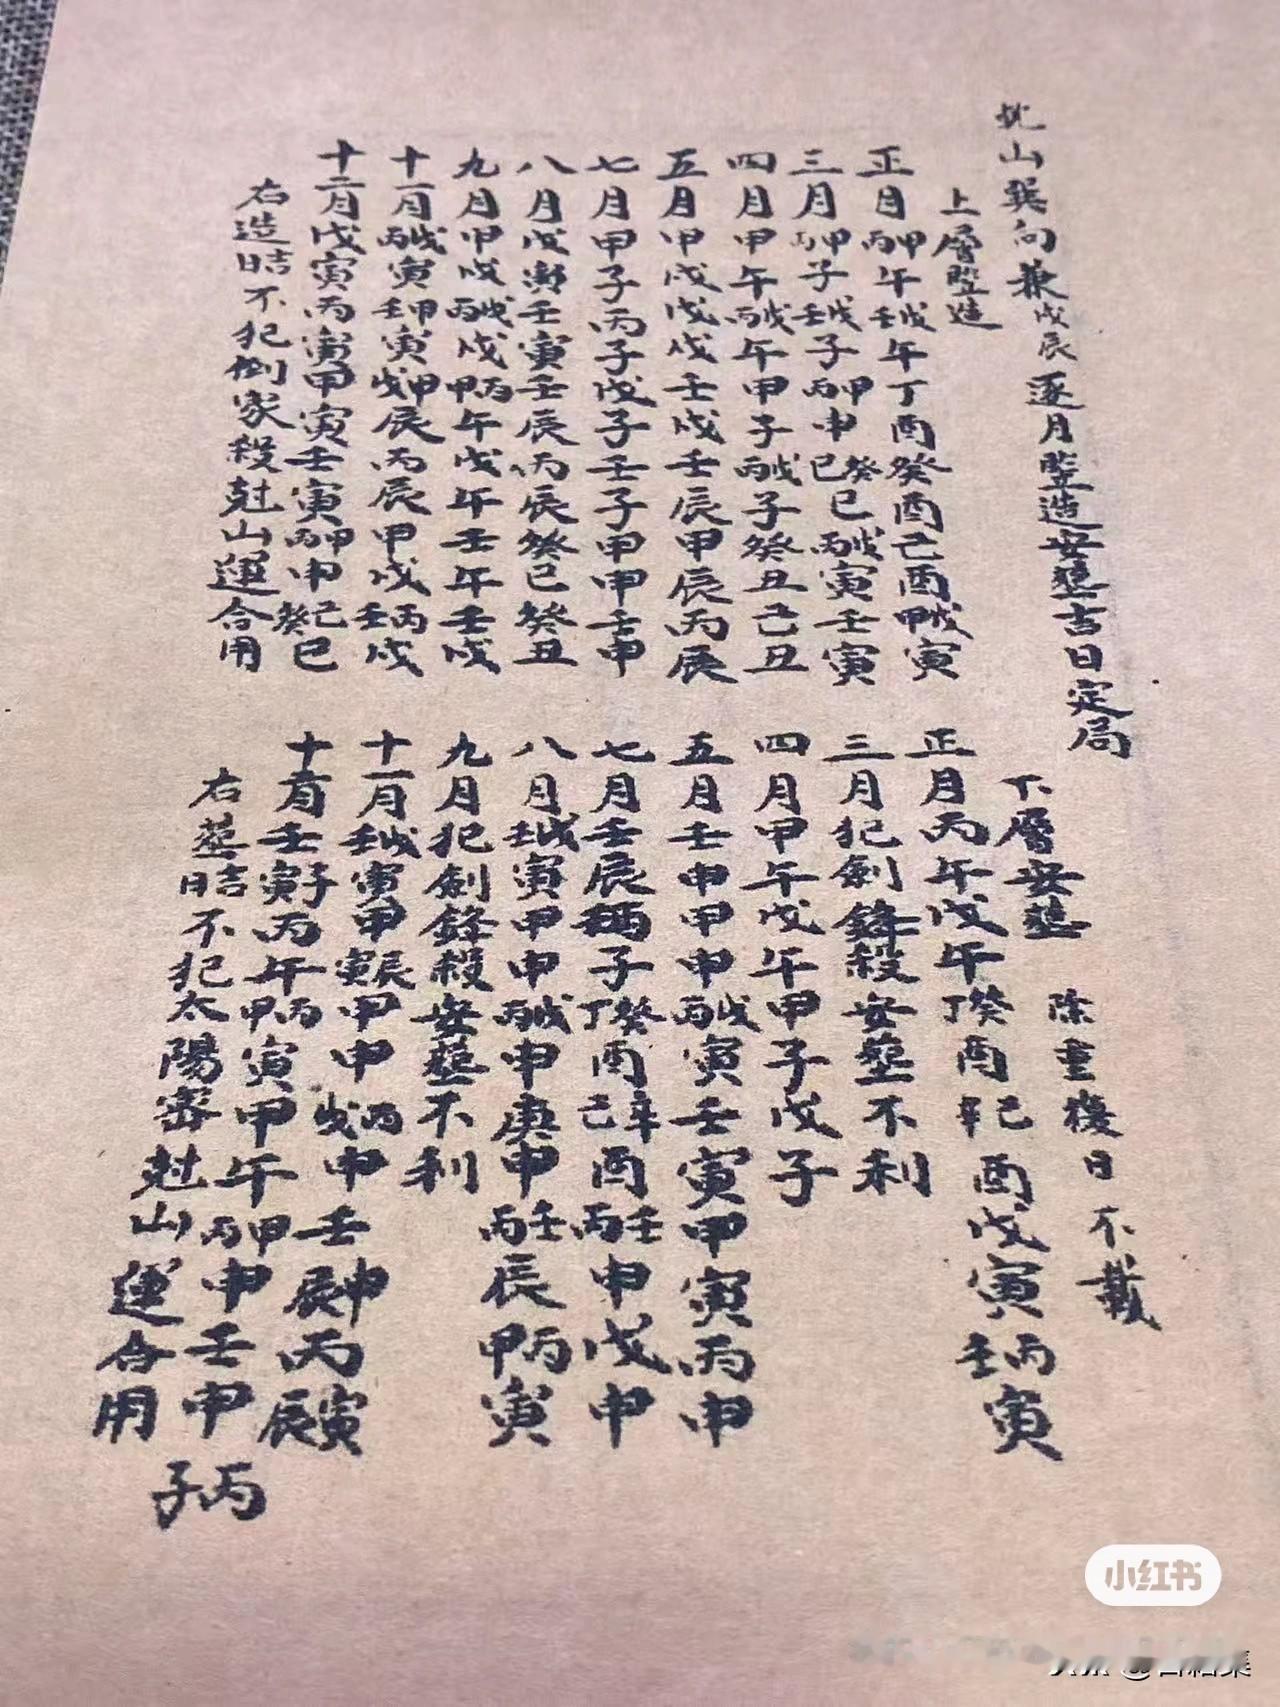 山巽向兼戊辰逐月竪造安葬吉日定局
上層竪造
正月丙甲午壬戊午丁酉癸酉己酉甲戊寅
三月丙甲子壬戊子丙甲申己癸巳丙戊寅壬寅
四月甲午丙戊午甲子丙戊子癸丑己丑
五月甲戌戊戌壬戌壬辰甲辰丙辰
七月甲子丙子戊子壬子甲申壬申
八月戊寅壬寅壬辰丙辰癸巳癸丑
九月甲戌丙戊戌甲丙午戊午壬午壬戌
十一月丙戊寅壬甲寅戊甲辰丙辰甲戌壬丙戌
十二月戊寅丙寅甲寅壬寅丙甲申癸己巳
右造吉日不犯倒家殺尅山運合用
下層安葬 除重復日不載
正月丙午戊午丁癸酉辛己酉戊寅壬丙寅
三月犯劍鋒殺安葬不利
四月甲午戊午甲子戊子
五月壬申甲申丙戊寅壬寅甲寅丙申
七月壬辰丙子丁癸酉己辛酉丙壬申戊申
八月壬戊寅甲申丙戊申庚申丙壬辰甲丙寅
九月犯劍鋒殺安葬不利
十一月壬戊寅甲寅辰甲申戊丙申壬辰申丙辰寅
十二月壬寅子丙午甲丙寅甲午丙甲申壬申丙子
右葬吉日不犯太陽密尅山運合用
小红书